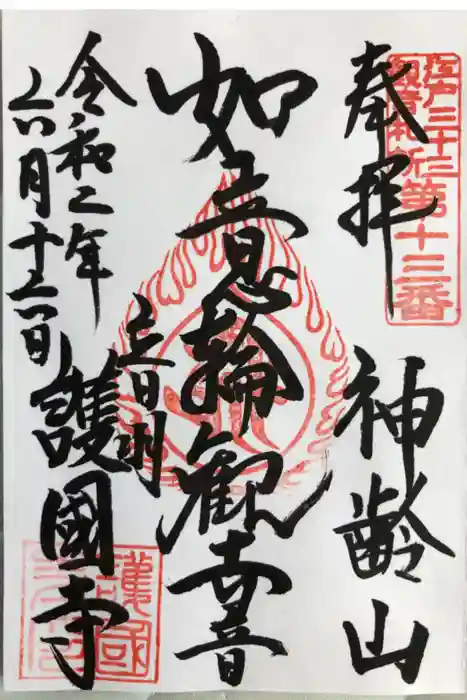 奉拝
神齢山
江戸三十三
観音札所第十三番
如意輪観世音
音羽
護國寺
令和二年
六月十六日